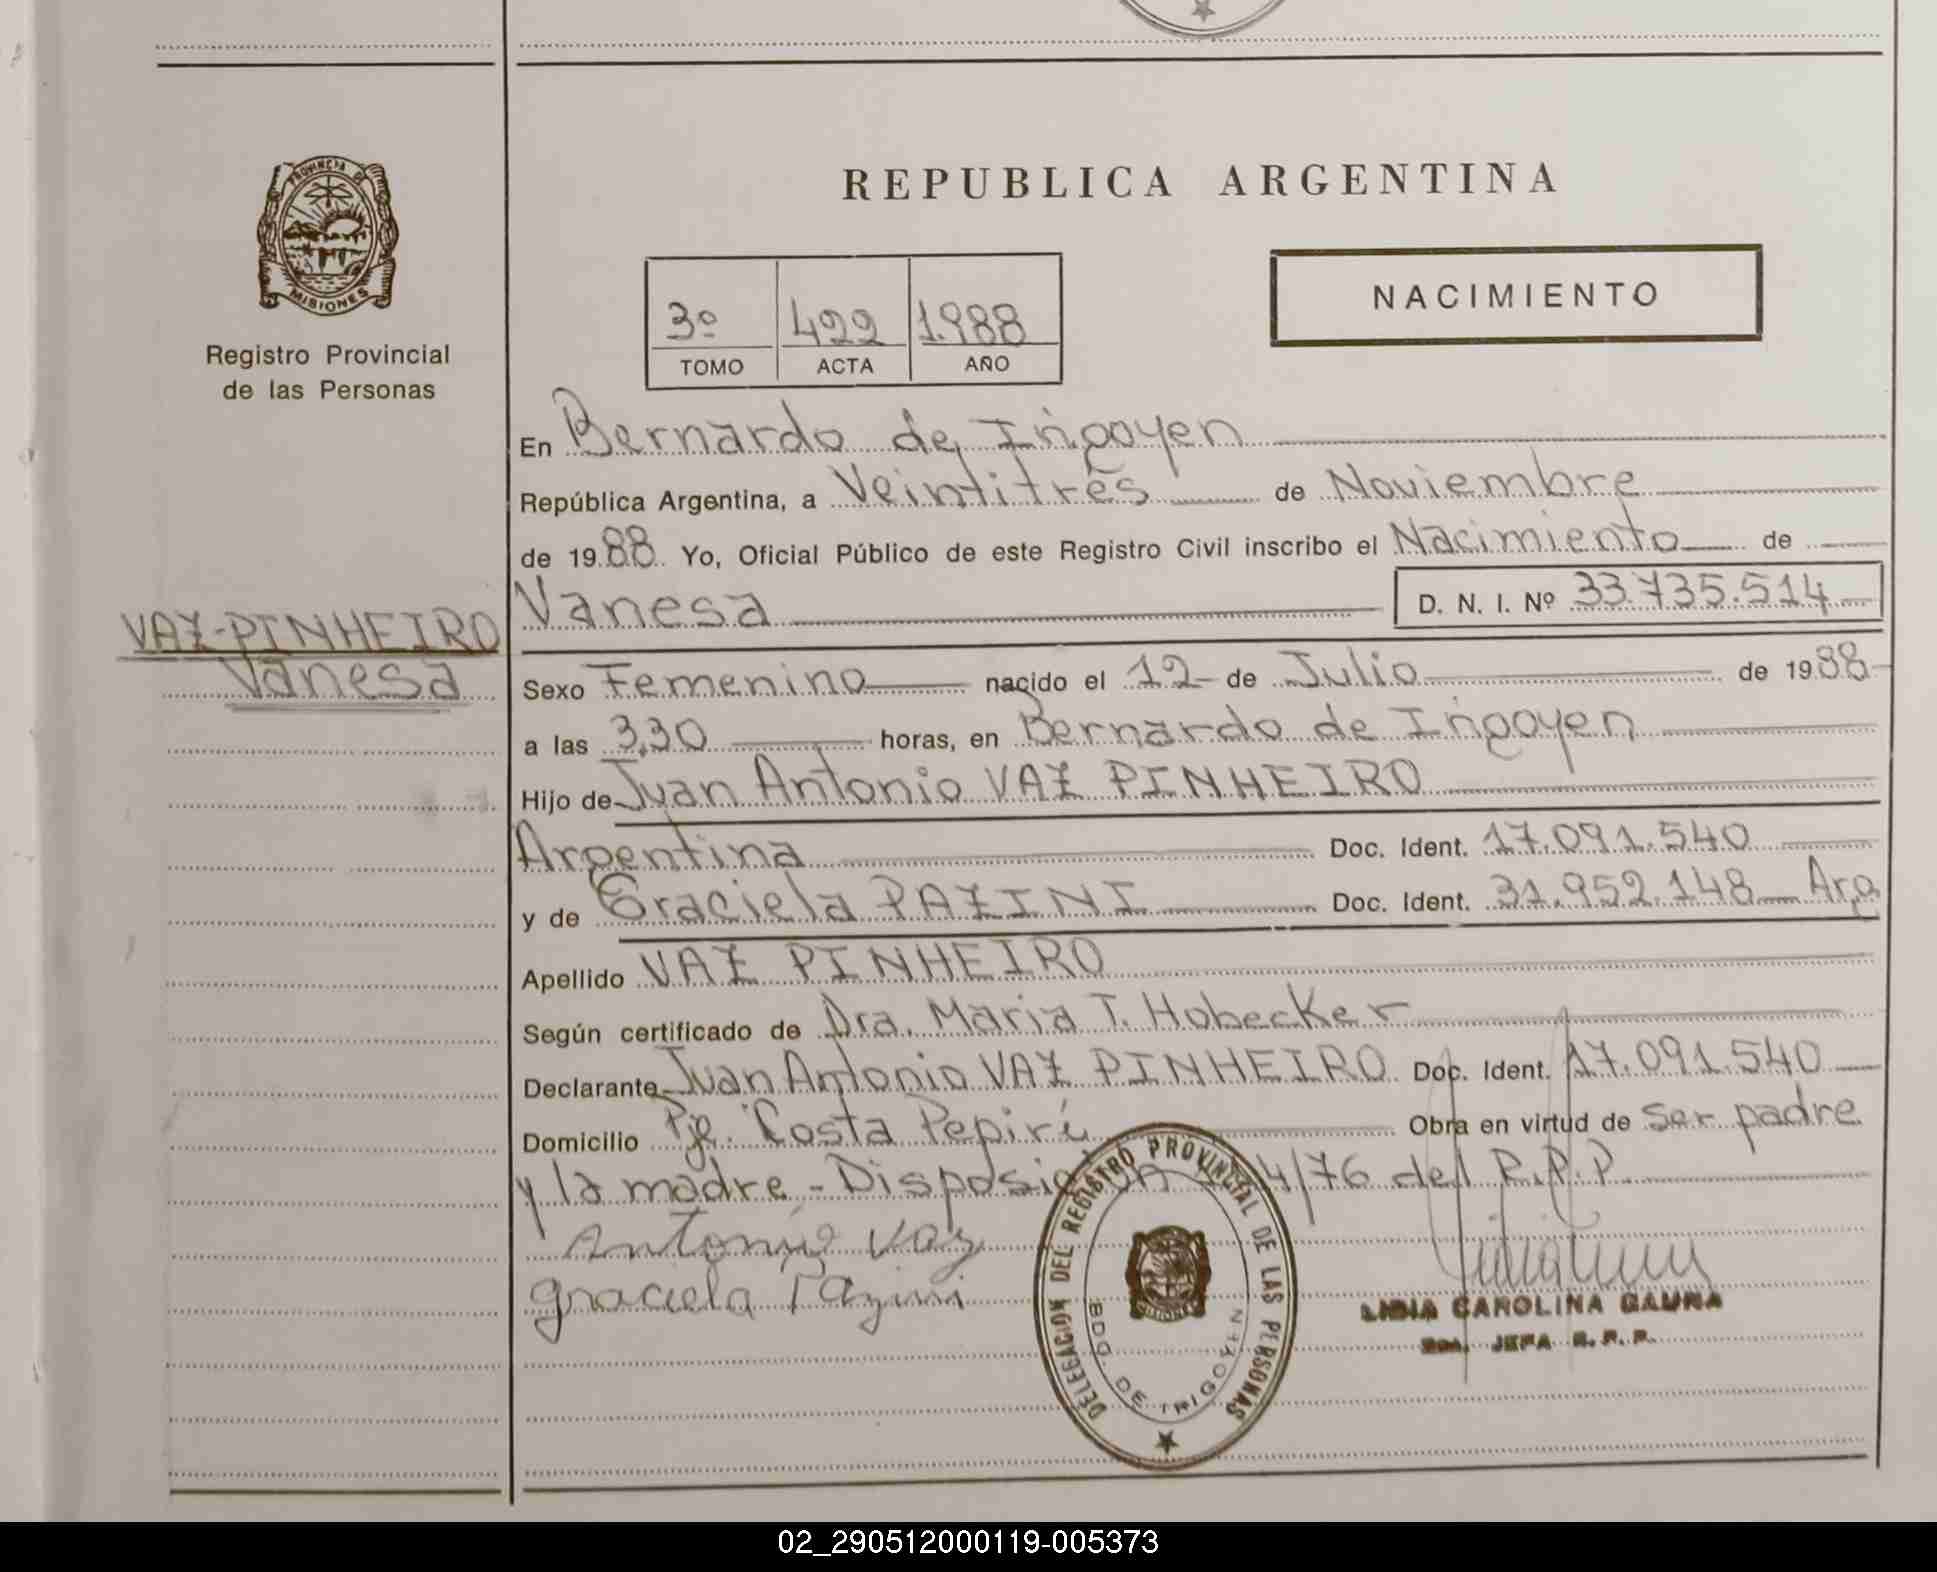 PROVINCIA DE
MISIONES
Registro Provincial
de las Personas
VAZ-PINHEIRO
Vanesa
REPUBLICA ARGENTINA
3º 422 1.988
TOMO ACTA AÑO
NACIMIENTO
En Bernardo de Irigoyen
República Argentina, a Veintitrés de Noviembre
de 1988 Yo, Oficial Público de este Registro Civil inscribo el Nacimiento de
Vanesa D. N. I. Nº 33.735.514
Sexo Femenino nacido el 12 de Julio de 1988
a las 3,30 horas, en Bernardo de Irigoyen
Hijo de Juan Antonio VAZ PINHEIRO
Argentina Doc. Ident. 17.091.540
y de Graciela PAZINI Doc. Ident. 31.952.148 Arg
Apellido VAZ PINHEIRO
Según certificado de Dra. Maria T. Hobecker
Declarante Juan Antonio VAZ PINHEIRO Doc. Ident. 17.091.540
Domicilio Pje. Costa Pepirí Obra en virtud de ser padre
y la madre - Disposición 4/76 del R.P.P.
Antonio Vaz
Graciela Pazini
DELEGACION DEL REGISTRO PROVINCIAL DE LAS PERSONAS
BDO. DE IRIGOYEN
MISIONES
LIDIA CAROLINA GAUNA
JEFA R. P. P.
02_290512000119-005373